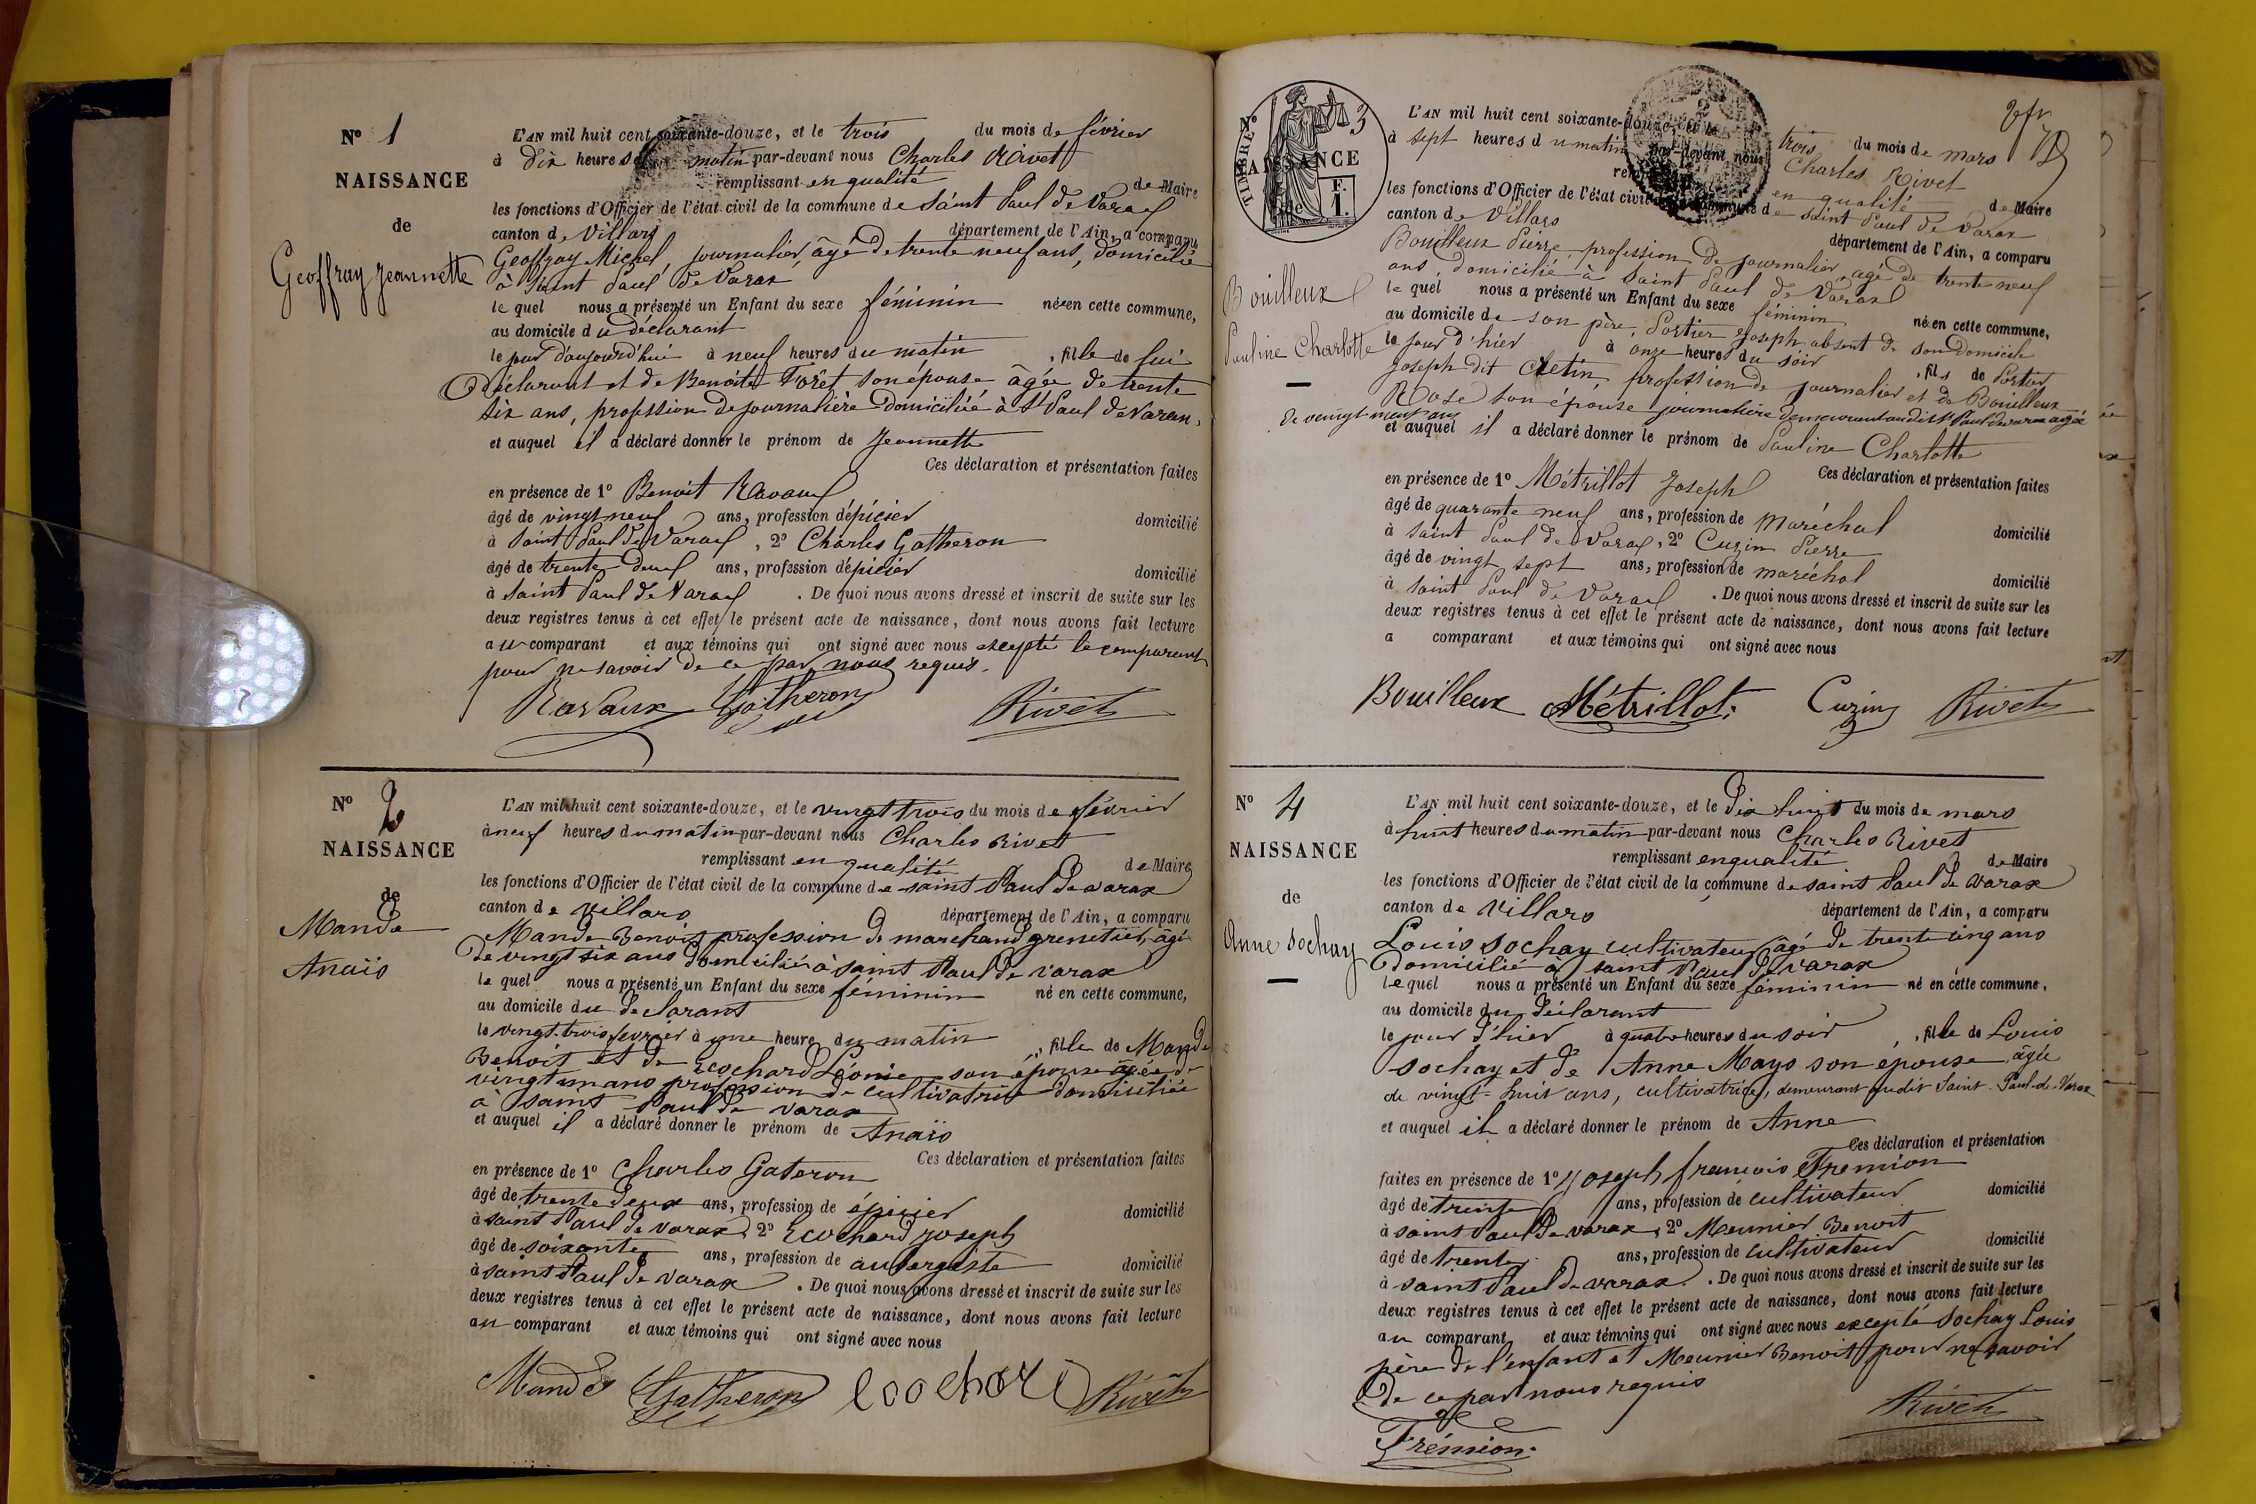 N° 1
NAISSANCE
de
Geoffray Jeannette
L'AN mil huit cent soixante-douze, et le trois du mois de février
à dix heures du matin par-devant nous Charles Rivet
remplissant en qualité de Maire
les fonctions d'Officier de l'état civil de la commune de Saint Paul de Varax
canton de Villars département de l'Ain, a comparu
Geoffray Michel, journalier, âgé de trente neuf ans, domicilié
à Saint Paul de Varax
le quel nous a présenté un Enfant du sexe féminin né en cette commune,
au domicile du déclarant
le jour d'aujourd'hui à neuf heures du matin, fille de lui
Déclarant et de Benoite Forêt son épouse âgée de trente
six ans, profession de journalière domiciliée à St Paul de Varax,
et auquel il a déclaré donner le prénom de Jeannette
Ces déclaration et présentation faites
en présence de 1° Benoit Ravaux
âgé de vingt neuf ans, profession d'épicier domicilié
à Saint Paul de Varax, 2° Charles Gatheron
âgé de trente deux ans, profession d'épicier domicilié
à Saint Paul de Varax. De quoi nous avons dressé et inscrit de suite sur les
deux registres tenus à cet effet le présent acte de naissance, dont nous avons fait lecture
au comparant et aux témoins qui ont signé avec nous excepté le comparant
pour ne savoir de ce par nous requis.
Ravaux Gatheron Rivet
N° 2
NAISSANCE
de
Mande
Anaïs
L'AN mil huit cent soixante-douze, et le vingt trois du mois de février
à neuf heures du matin par-devant nous Charles Rivet
remplissant en qualité de Maire
les fonctions d'Officier de l'état civil de la commune de saint Paul de varax
canton de villars département de l'Ain, a comparu
Mande Benoit profession de marchand grenetier, âgé
de vingt six ans domicilié à saint Paul de varax
le quel nous a présenté un Enfant du sexe féminin né en cette commune,
au domicile du declarant
le vingt-trois fevrier à une heure du matin, fille de Mande
Benoit et de Ecochard Léonie son épouse âgée de
vingt un ans profession de cultivatrice domiciliée
à saint Paul de varax
et auquel il a déclaré donner le prénom de Anaïs
Ces déclaration et présentation faites
en présence de 1° Charles Gateron
âgé de trente deux ans, profession de épicier domicilié
à saint Paul de varax, 2° Ecochard Joseph
âgé de soixante ans, profession de aubergiste domicilié
à saint Paul de varax. De quoi nous avons dressé et inscrit de suite sur les
deux registres tenus à cet effet le présent acte de naissance, dont nous avons fait lecture
au comparant et aux témoins qui ont signé avec nous
Mande Gatheron Rivet
N° 3
NAISSANCE
de
TIMBRE
F.
1.
Bouilleux
Pauline Charlotte
L'AN mil huit cent soixante-douze, et le trois du mois de mars
à sept heures du matin par-devant nous Charles Rivet
remplissant en qualité de Maire
les fonctions d'Officier de l'état civil de la commune de saint Paul de Varax
canton de Villars département de l'Ain, a comparu
Bouilleux Pierre, profession de journalier, âgé de trente neuf
ans, domicilié à Saint Paul de Varax
le quel nous a présenté un Enfant du sexe féminin né en cette commune,
au domicile de son père, Portier Joseph absent de son domicile
le jour d'hier à onze heures du soir, fils de Portier
Joseph dit profession de journalier et de Bouilleux
Rose son épouse journalière demeurant audit St Paul de varax agée
de veingt neuf ans
et auquel il a déclaré donner le prénom de Pauline Charlotte
Ces déclaration et présentation faites
en présence de 1° Métrillot Joseph
âgé de quarante neuf ans, profession de maréchal domicilié
à saint Paul de Varax, 2° Cuzin Pierre
âgé de vingt sept ans, profession de maréchal domicilié
à saint Paul de Varax. De quoi nous avons dressé et inscrit de suite sur les
deux registres tenus à cet effet le présent acte de naissance, dont nous avons fait lecture
a comparant et aux témoins qui ont signé avec nous
Bouilleux Métrillot Cuzin Rivet
N° 4
NAISSANCE
de
Anne Sochay
L'AN mil huit cent soixante-douze, et le dix huit du mois de mars
à huit heures du matin par-devant nous Charles Rivet
remplissant en qualité de Maire
les fonctions d'Officier de l'état civil de la commune de saint Paul de varax
canton de villars département de l'Ain, a comparu
Louis Sochay cultivateur âgé de trente cinq ans
domicilié à saint Paul de varax
le quel nous a présenté un Enfant du sexe féminin né en cette commune,
au domicile du déclarant
le jour d'hier à quatre heures du soir, fille de Louis
Sochay et de Anne Mays son épouse âgée
de vingt-huit ans, cultivatrice, demeurant audit Saint-Paul-de-Varax
et auquel il a déclaré donner le prénom de Anne
Ces déclaration et présentation
faites en présence de 1° Joseph françois Fremion
âgé de trente ans, profession de cultivateur domicilié
à saint Paul de varax, 2° Meunier Benoit
âgé de trente ans, profession de cultivateur domicilié
à saint Paul de varax. De quoi nous avons dressé et inscrit de suite sur les
deux registres tenus à cet effet le présent acte de naissance, dont nous avons fait lecture
au comparant et aux témoins qui ont signé avec nous excepté Sochay Louis
père de l'enfant et Meunier Benoit pour ne savoir
de ce par nous requis
Rivet
Frémion